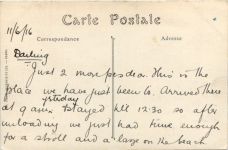 Carte Postale
11/6/16
Correspondance
Adresse
Darling
Just 2 more pcs dear. This is the
place we have just been to. Arrived there
yesterday
at 9 am & stayed till 12.30 so after
unloading we just had time enough
for a stroll and a laze on the beach